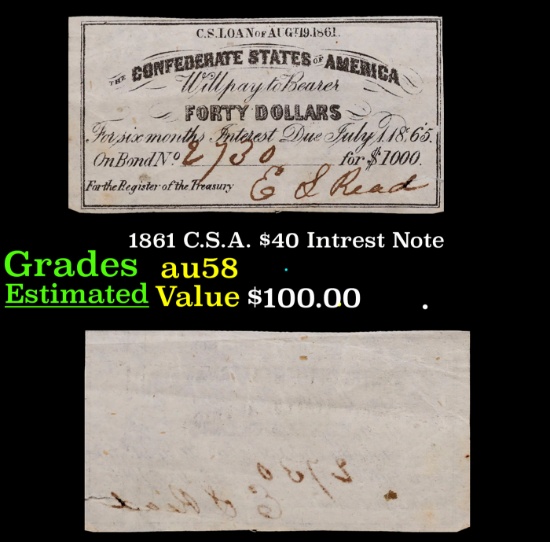 C.S. LOAN OF AUGT 19. 1861.
THE CONFEDERATE STATES OF AMERICA
Will pay to Bearer
FORTY DOLLARS
For six months Interest Due July 1. 1865.
On Bond No 2730 for $1000.
For the Register of the Treasury E S Read
1861 C.S.A. $40 Intrest Note
Grades au58
Estimated Value $100.00 .
2730
E S Read